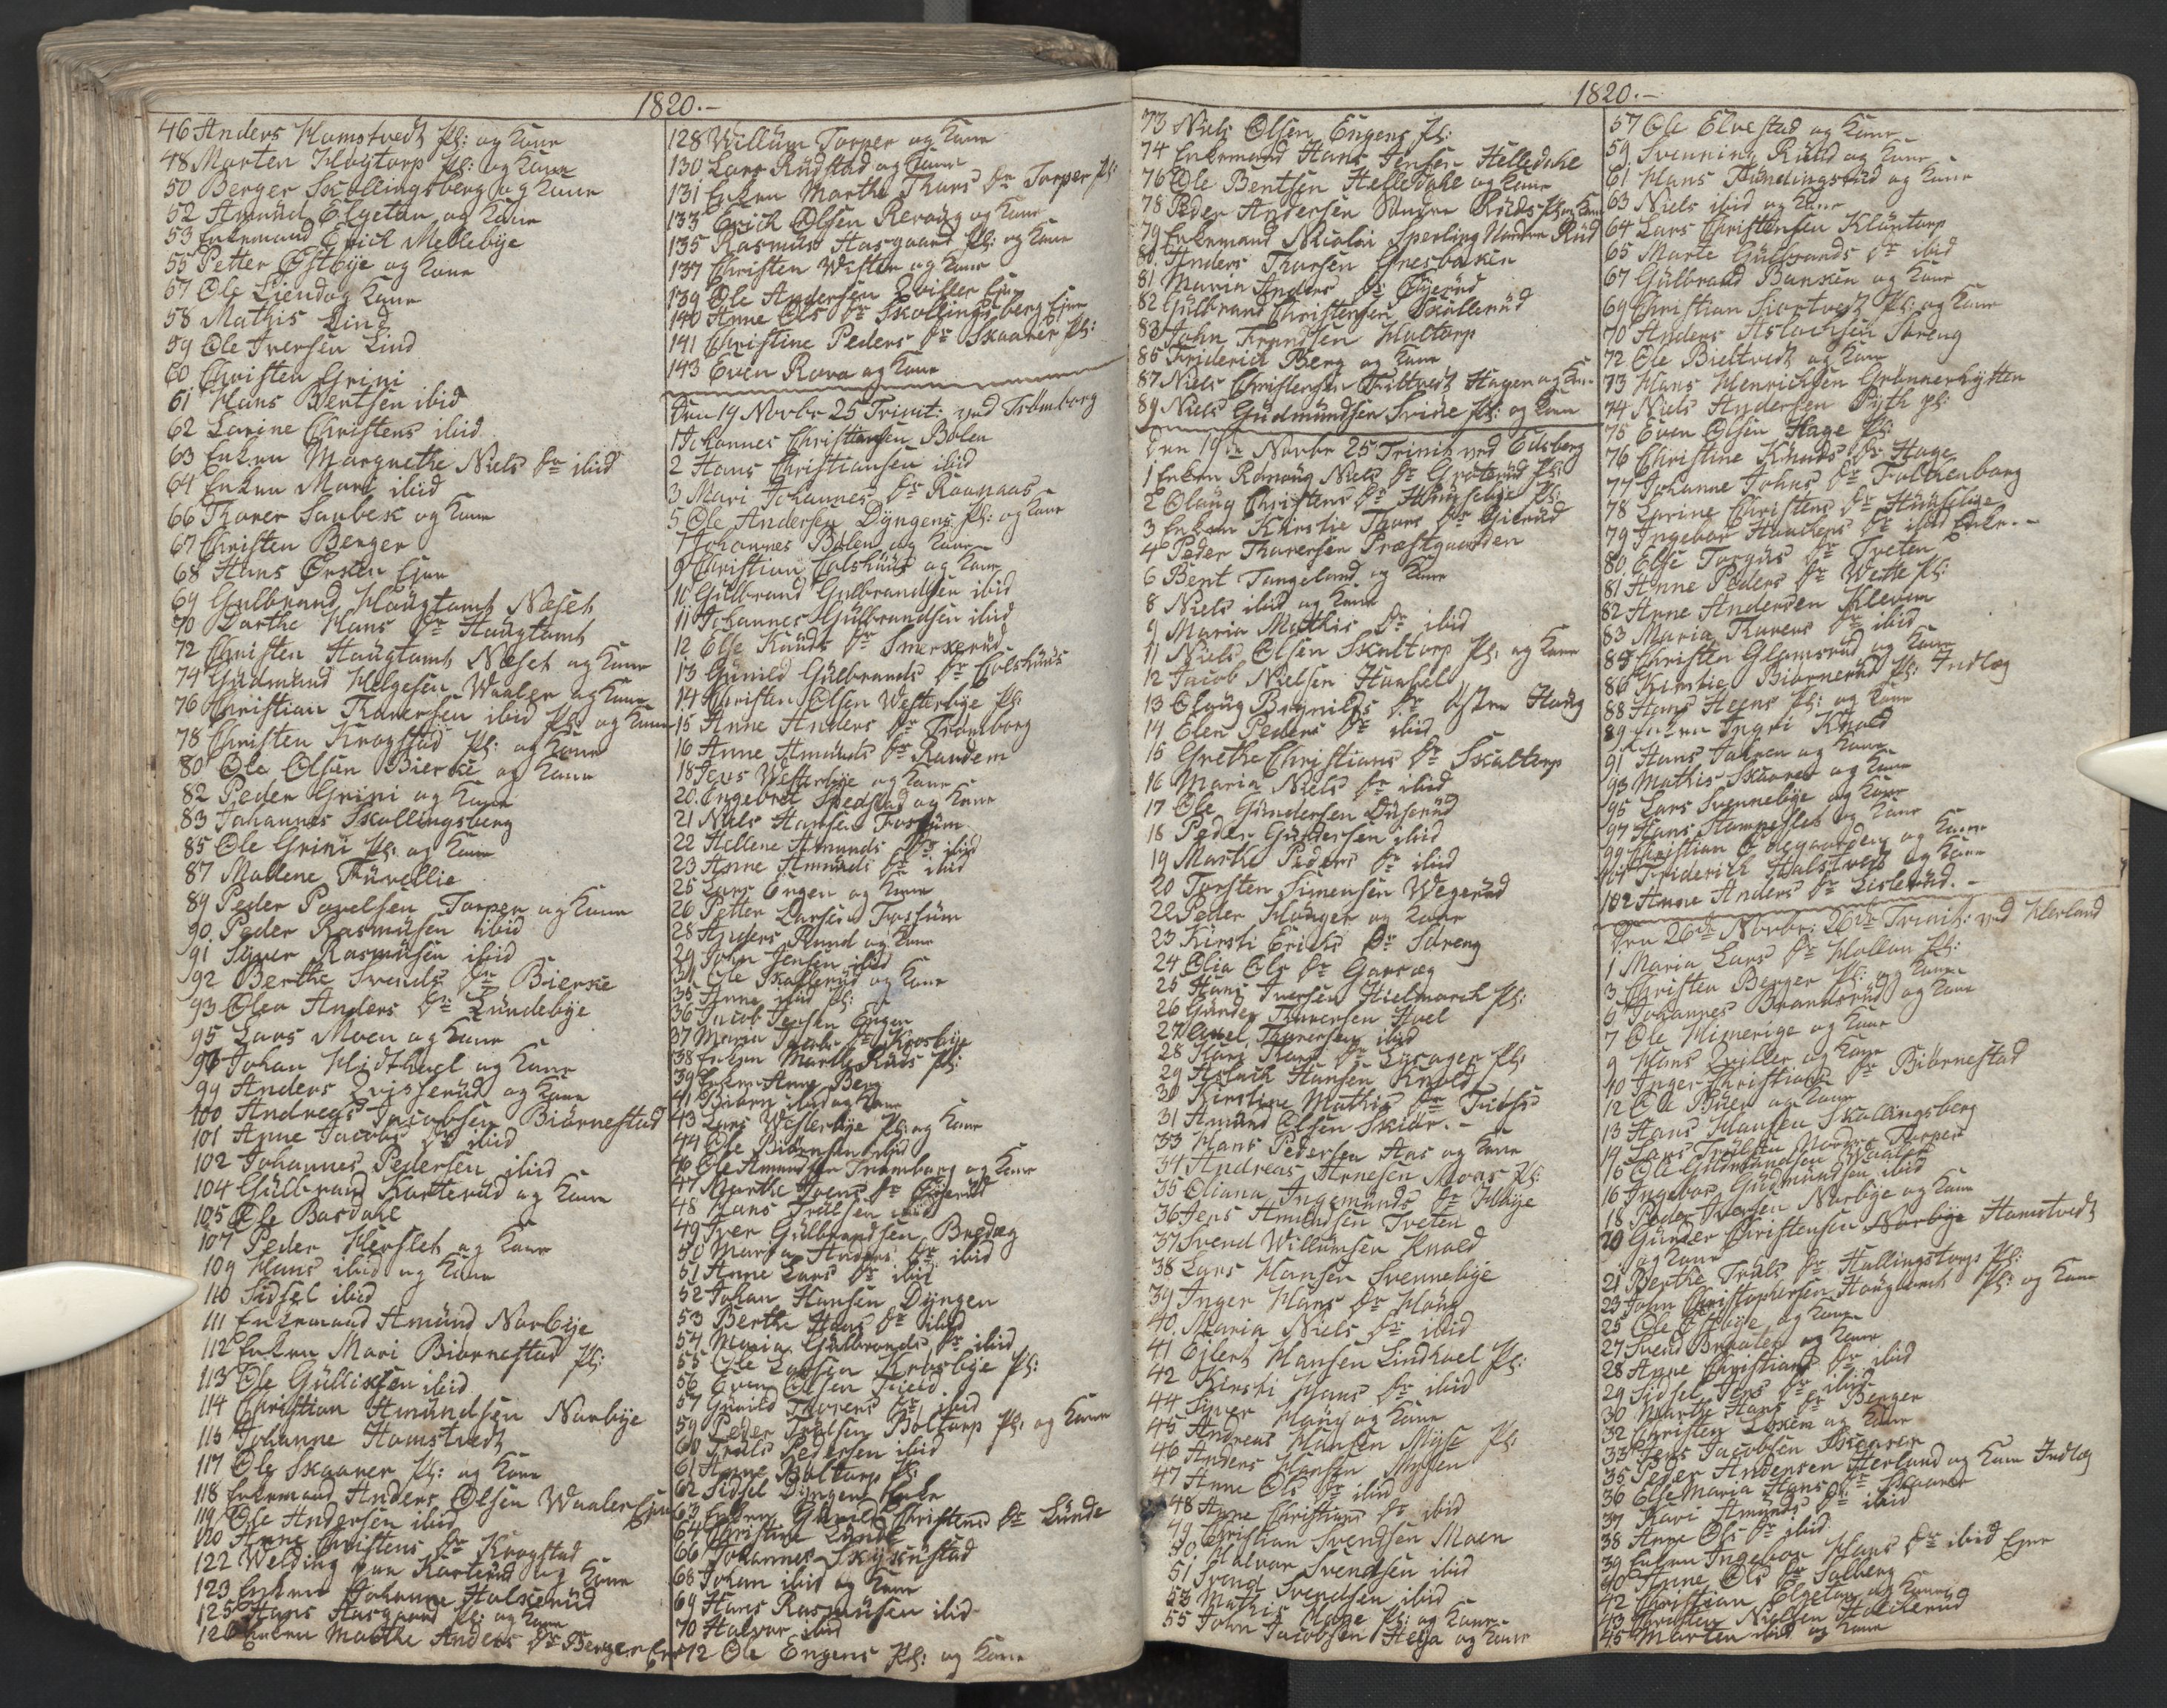 1820.-
46 Anders Hamstvedt Pl: og Kone
48 Morten Høytorp Pl: og Kone
50 Berger Skollingsberg og Kone
52 Amund Elgetun og Kone
53 Enkemand Erich Mellebye
55 Petter Østbye og Kone
57 Ole Liend og Kone
58 Mathis Lind
59 Ole Iversen Lind
60 Christen Grini
61 Hans Bentsen ibid
62 Karine Christens ibid
63 Enken Margrethe Niels Dr ibid
64 Enken Mari ibid
66 Thorer Saubek og Kone
67 Christen Berger
68 Hans Ørsken Ejer
69 Gulbrand Haugtomt Næset
70 Dorthe Hans Dr Haugtomt
72 Christen Haugtomt Næset og Kone
74 Gudmund Helgesen Waaler og Kone
76 Christian Thoresen ibid Pl: og Kone
78 Christen Krogstad Pl: og Kone
80 Ole Olsen Bierke og Kone
82 Peder Grini og Kone
83 Johannes Skollingsberg
85 Ole Grini Pl: og Kone
87 Mallene Tuvellie
89 Peder Povelsen Torper og Kone
90 Peder Rasmusen ibid
91 Siver Rasmusen ibid
92 Berthe Svends Dr Bierke
93 Olea Anders Dr Lundebye
95 Lars Moen og Kone
97 Johan Midthuel og Kone
99 Anders Qvisserud og Kone
100 Andreas Jacobsen Biørnestad
101 Anne Jacobs Dr ibid
102 Johannes Pedersen ibid
104 Gulbrand Karterud og Kone
105 Ole Basdahl
107 Peder Herslet og Kone
109 Hans ibid og Kone
110 Sidsel ibid
111 Enkemand Amund Narbye
112 Enken Mari Biørnestad Pl:
113 Ole Gulliksen ibid
114 Christian Amundsen Narbye
115 Johanne Hamstvedt
117 Ole Skaarer Pl: og Kone
118 Enkemand Anders Olsen Waaler Ejer
119 Ole Andersen ibid
120 Anne Christens Dr Krogstad
122 Welding paa Karterud og Kone
123 Enken Johanne Halskerud
125 Hans Aasgaard Pl: og Kone
126 Enken Marthe Anders Dr Berger
128 Willum Torper og Kone
130 Lars Rudstad og Kone
131 Enken Marthe Thors Dr Torper Pl:
133 Erich Olsen Revoug og Kone
135 Rasmus Aasgaard Pl: og Kone
137 Christen Wister og Kone
139 Ole Andersen Qviller Ejer
140 Anne Ols Dr Skollingsberg Ejer
141 Christine Peders Dr Skaarer Pl:
143 Even Rova og Kone
Den 19 Novbr 25 Trinit: ved Trømborg
1 Johannes Christiansen Bolen
2 Hans Christiansen ibid
3 Mari Johannes Dr Raanaas
5 Ole Andersen Dyngens Pl: og Kone
7 Johannes Bolen og Kone
9 Christian Colshuus og Kone
10 Gulbrand Gulbrandsen ibid
11 Johannes Gulbrandsen ibid
12 Else Knuds Dr Smerkerud
13 Gunild Gulbrands Dr Colshuus
14 Christen Olsen Westerbye Pl:
15 Anne Anders Dr Trømborg
16 Anne Amunds Dr Randem
18 Jens Westerbye og Kone
20 Engebret Spedstad og Kone
21 Niels Hansen Fossum
22 Hellene Amunds Dr ibid
23 Anne Amunds Dr ibid
25 Lars Engen og Kone
26 Petter Larsen Fossum
28 Anders Rund og Kone
29 John Jensen ibid
31 Ole Skallerud og Kone
35 Anne ibid Pl:
36 Jacob Jensen Engen
37 Maren Jacobs Dr Krosbye
38 Enken Marthe Ruds Pl:
39 Enken Anne Berg
41 Biørn ibid og Kone
43 Lars Westerbye Pl: og Kone
44 Ole Biørnsen ibid
46 Ole Amundsen Trømborg og Kone
47 Marthe Ivers Dr Øyerud
48 Hans Trulsen ibid
49 Iver Gulbrandsen Bredæg
50 Maria Anders Dr ibid
51 Anne Lars Dr ibid
52 Johan Hansen Dyngen
53 Berthe Hans Dr ibid
54 Maria Gulbrands Dr ibid
55 Ole Larsen Krosbye Pl:
56 Even Olsen Field
57 Gunild Thorers Dr ibid
59 Peder Trulsen Boltorp Pl: og Kone
60 Truls Pedersen ibid
61 Anne Boltorp Pl:
62 Sidsel Dyngens Enke
63 Enken Gunild Christens Dr Lunde
64 Christine Lunde
66 Johannes Skyknstad
68 Johan ibid og Kone
69 Hans Rasmusen ibid
70 Halvor ibid
72 Ole Engens Pl: og Kone
1820.-
73 Niels Olsen Engens Pl:
74 Enkemand Hans Jensen Helledahl
76 Ole Bentsen Helledahl og Kone
78 Peder Andersen Søndre Ruds Pl: og Kone
79 Enkemand Nicolai Sperling Nordre Rud
80 Anders Thorsen Gresbakken
81 Maria Anders Dr Øyerud
82 Gulbrand Christensen Skallerud
83 John Frandsen Haltorp
85 Friderich Berg og Kone
87 Niels Christensen Tveitvedt Hagen og Kone
89 Niels Gudmundsen Grine Pl: og Kone
Den 19de Novbr 25 Trinit ved Eidsberg
1 Enken Rønnoug Niels Dr Groterud Pl:
2 Oloug Christens Dr Huusebye Pl:
3 Enken Kirstie Thors Dr Gilerud
4 Peder Thoresen Præstgaarden
6 Bent Tangeland og Kone
8 Niels ibid og Kone
9 Maria Mathis Dr ibid
11 Niels Olsen Skaltorp Pl: og Kone
12 Jacob Nielsen Huusel
13 Oloug Brynilds Dr Østre Haug
14 Elen Peders Dr ibid
15 Grethe Christians Dr Skaltorp
16 Maria Niels Dr ibid
17 Ole Gundersen Duserud
18 Peder Gundersen ibid
19 Marthe Peders Dr ibid
20 Torsten Simensen Wegerud
22 Peder Hauger og Kone
23 Kirsti Erichs Dr Streng
24 Olia Ols Dr Garseg
25 Hans Iversen Hielmark Pl:
26 Gunder Thoresen Huel
27 Thoresen ibid
28 Kari Hans Dr Lusager Pl:
29 Aslach Hansen Knold
30 Kirstine Mathis Dr Tubss
31 Amund Olsen Skiør.-
33 Hans Pedersen Aas og Kone
34 Andreas Arnesen Moens Pl:
35 Oliana Ingemunds Dr Habye
36 Jens Amundsen Tveten
37 Svend Willumsen Knold
38 Lars Hansen Svennebye
39 Inger Hans Dr Haug
40 Maria Niels Dr ibid
41 Eilert Hansen Lindhoel Pl:
42 Kirsti Hans Dr ibid
44 Siver Haug og Kone
45 Andreas Hansen Myse Pl:
46 Anders Hansen Mysen
47 Anne Ols Dr ibid
48 Anne Christians Dr ibid
49 Christian Svendsen Moen
50 Halvor Svendsen ibid
51 Svend Svendsen ibid
53 Mathis Hage Pl: og Kone
55 John Jacobsen Heija og Kone
57 Ole Elvestad og Kone
59 Svenning Ruud og Kone
61 Hans Fundingsrud og Kone
63 Niels ibid og Kone
64 Lars Christensen Kluntorp
65 Marte Gulbrands Dr ibid
67 Gulbrand Bunken og Kone
69 Christian Siortvedt Pl: og Kone
70 Anders Aslachsen Streng
72 Ole Bieltvedt og Kone
73 Hans Henrichsen Grønnerhytten
74 Niels Andersen Pyth Pl:
75 Even Olsen Hage Pl:
76 Christine Knuds Dr Hage
77 Johanne Johns Dr Falkenborg
78 Karine Christens Dr Huusebye
79 Ingebor Haachens Dr ibid Enke.-
80 Else Torgus Dr Tveten
81 Anne Peders Dr Wette Pl:
82 Anne Andersen Kleven
83 Maria Thorers Dr ibid
85 Christen Glamsrud og Kone
86 Kirstie Biørnerud Pl: Indlæg
88 Hans Heens Pl: og Kone
89 Enken Ingri Knold
91 Hans Dahlen og Kone
93 Mathis Skaarer og Kone
95 Lars Svennebye og Kone
97 Hans Homperslet og Kone
99 Christian Ødegaarden og Kone
101 Friderich Halstvedt og Kone
102 Anne Anders Dr Lislerud.-
Den 26de Novbr: 26de Trinit: ved Herland
1 Maria Lars Dr Hallen Pl:
3 Christen Berger Pl: og Kone
5 Johannes Brandsrud og Kone
7 Ole Himerige og Kone
9 Hans Qviller og Kone
10 Inger Christians Dr Biørnestad
12 Ole Buer og Kone
13 Hans Hansen Skollingsberg
14 Lars Trulsen Nordre Torper
15 Ole Gudmundsen Waaler
16 Ingebor Gudmundsen ibid
18 Peder Iversen Narbye og Kone
20 Gunder Christensen Narbye Hamstvedt
og Kone
21 Berthe Truls Dr Hallingstorps Pl:
23 John Christophersen Haugtomt Pl: og Kone
25 Ole Østbye og Kone
27 Svend Braaten og Kone
28 Anne Christians Dr ibid
29 Sidsel Jens Dr ibid
30 Marthe Hans Dr Berger
32 Christen Løken og Kone
33 Jens Jacobsen Skaarer
35 Peder Andersen Herland og Kone Indlæg
36 Else Maria Hans Dr Skaarer
37 Kari Amunds Dr ibid
38 Anne Ols Dr ibid
39 Enken Ingebor Hans Dr ibid Ejer
40 Anne Ols Dr Solberg
42 Christian Elgetun og Kone
43 Christen Nielsen Halskerud
45 Marten ibid og Kone